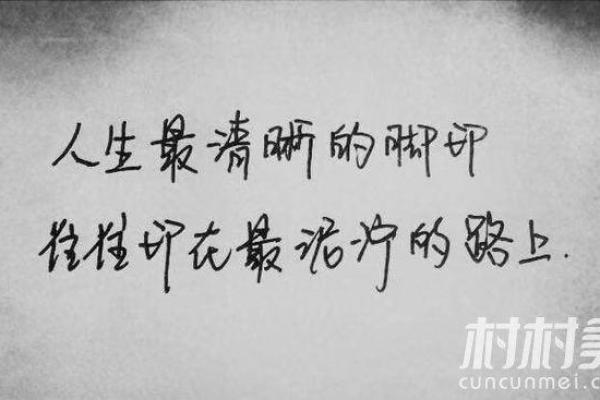 人生最清晰的脚印
往往印在最泥泞的路上.
村村美
cuncunmei.c